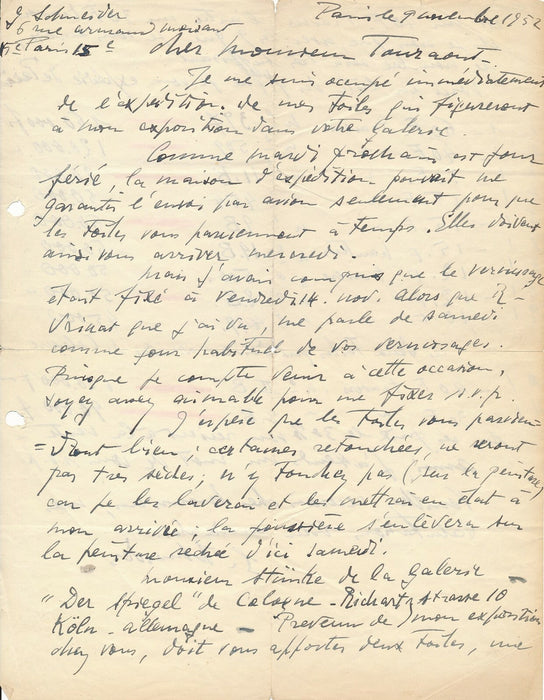 G Schneider
6 rue armand moisant
Paris 15e
Paris le 9 novembre 1952
Cher monsieur Tourzont.
Je me suis occupé immédiatement
de l'expédition de mes Toiles qui figureront
à mon exposition dans votre Galerie.
Comme mardi prochain est jour
férié, la maison d'expédition pouvait me
garantir l'envoi par avion seulement pour que
les Toiles vous parviennent à temps. Elles doivent
ainsi vous arriver mercredi.
Mais j'avais compris que le vernissage
étant fixé à vendredi 14. nov. Alors que
que j'ai vu, me parle de samedi
comme jour habituel de vos vernissages.
Puisque je compte venir à cette occasion,
soyez assez aimable pour me fixer s.v.p.
J'espère que les Toiles vous parvien-
=dront bien; certaines retouchées, ne seront
pas très sèches; n'y Touchez pas (sur la peinture)
car je les laverai et les mettrai en état à
mon arrivée; la poussière s'enlèvera sur
la peinture séchée d'ici samedi.
Monsieur Stünke de la Galerie
"Der Spiegel" de Cologne - Richartzstrasse 10
Köln - allemagne - Prevenu de mon exposition
chez vous, doit vous apporter deux Toiles, une